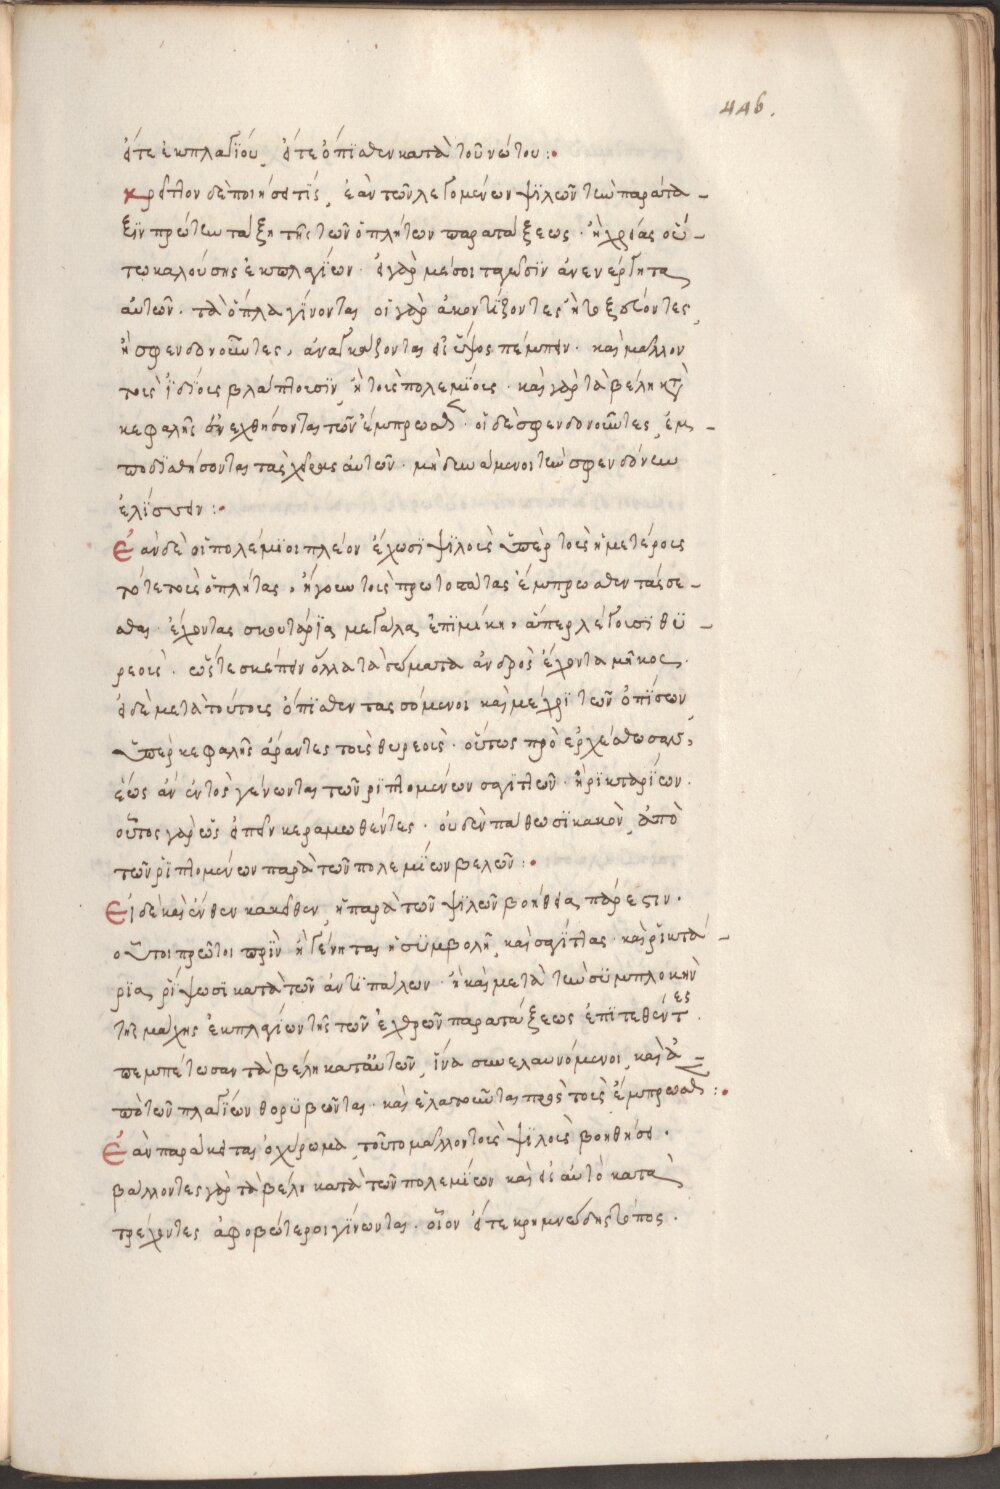 446.
εἴτε ἐκ πλαγΐου, εἴτε ὄπϊσθεν κατὰ τοῦ νώτου :•
κρεῖττον δὲ ποιήσει τίς, ἐὰν τῶν λεγομένων ψϊλῶν τὴν παράτα –
ξϊν πρώτην τάξη τῆς τῶν ὁπλήτων παρατάξεως · ἢ χρείας οὕ –
τω καλούσης ἐκ πλαγΐων · εἰ γὰρ μέσοι ταγῶσϊν ἀνενέργητα
αὐτῶν · τὰ ὅπλα γΐνονται οἱ γὰρ ἀκοντΐζοντες ἢ τοξεύοντες,
ἢ σφενδονοῦντες, ἀναγκάζονται εἰς ὕψος πέμπειν · καὶ μᾶλλον
τοὺς ἰδΐους βλάπτουσϊν, ἢ τοὺς πολεμΐους · καὶ γὰρ τὰ βέλη κατὰ
κεφαλῆς ἐνεχθήσονται τῶν ἔμπρωσθεν · οἱ δὲ σφενδονοῦντες, ἐμ –
ποδϊσθήσονται τὰς χεῖρας αὐτῶν · μὴ δυνάμενοι τὴν σφενδόνην
ἑλΐσσειν :•
Ἐὰν δὲ οἱ πολέμϊοι πλείον ἔχωσϊ ψϊλοὺς ὑπὲρ τοὺς ἡμετέρους
τότε τοὺς ὁπλήτας, ἤγουν τοὺς πρωτοστάτας ἔμπρωσθεν τάσσε –
σθαι · ἔχοντας σκουτάρϊα μεγάλα ἐπϊμήκη, ἅπερ λέγουσϊ θϋ –
ρεοὺς · ὥστε σκέπειν ὅλλα τὰ σώματα ἀνδρὸς ἔχοντα μῆκος ·
οἱ δὲ μετὰ τούτους ὄπϊσθεν τασσόμενοι καὶ μέχρϊ τῶν ὀπΐσων,
ὑπὲρ κεφαλῆς ἄραντες τοὺς θυρεοὺς · οὕτως προερχέσθωσαν,
ἕως ἂν ἐντὸς γένωνται τῶν ρϊπτομένων σαγΐτων · ἢ ρϊκταρΐων ·
οὗτος γὰρ ὡς εἰπεῖν κεραμωθέντες · οὐδὲν πάθωσϊ κακὸν ἀπὸ
τῶν ρϊπτομένων παρὰ τῶν πολεμΐων βελῶν :•
Εἰ δὲ καὶ ἔνθεν κακεῖθεν, ἡ παρὰ τῶν ψϊλῶν βοήθεια πάρεστιν ·
οὗτοι πρῶτοι πρὶν ἢ γένηται ἡ σϋμβολὴ, καὶ σαγΐττας · καὶ ρϊκτά –
ρϊα, ρΐψωσϊ κατὰ τῶν ἀντϊπάλων · ἢ καὶ μετὰ τὴν σϋμπλοκὴν
τῆς μάχης ἐκ πλαγΐων τῆς τῶν ἐχθρῶν παρατάξεως ἐπϊτεθέντες ·
πεμπέτωσαν τὰ βέλη κατ' αὐτῶν, ἵνα συνελαυνόμενοι, καὶ ἀ –
πὸ τῶν πλαγΐων θορϋβῶνται · καὶ ἐλαττοῦνται πρὸς τοὺς ἔμπρωσθεν :•
Ἐὰν παράκειται ὀχύρωμα, τοῦτο μᾶλλον τοὺς ψϊλοὺς βοηθήσει ·
βάλλοντες γὰρ τὰ βέλη κατὰ τῶν πολεμΐων καὶ εἰς αὐτὸ κατα
τρέχοντες ἀφοβώτεροι γΐνωνται · οἷον εἴτε κρημνώδης τόπος ·